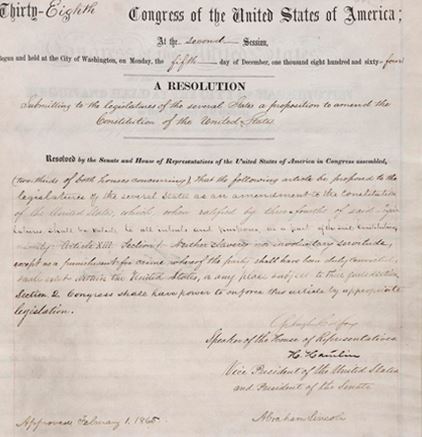 Thirty-Eighth Congress of the United States of America;
At the second Session,
Begun and held at the City of Washington, on Monday, the fifth day of December, one thousand eight hundred and sixty-four
A RESOLUTION
Submitting to the legislatures of the several States a proposition to amend the
Constitution of the United States.
Resolved by the Senate and House of Representatives of the United States of America in Congress assembled,
(two thirds of both houses concurring), That the following article be proposed to the
legislatures of the several States as an amendment to the Constitution
of the United States, which, when ratified by three-fourths of said Legis-
latures, shall be valid to all intents and purposes, as a part of the said Constitution,
namely: Article XIII. Section 1. Neither slavery nor involuntary servitude,
except as a punishment for crime whereof the party shall have been duly convicted,
shall exist within the United States, or any place subject to their jurisdiction.
Section 2. Congress shall have power to enforce this article by appropriate
legislation.
Schuyler Colfax
Speaker of the House of Representatives
H. Hamlin
Vice President of the United States
and President of the Senate
Approved February 1, 1865 Abraham Lincoln